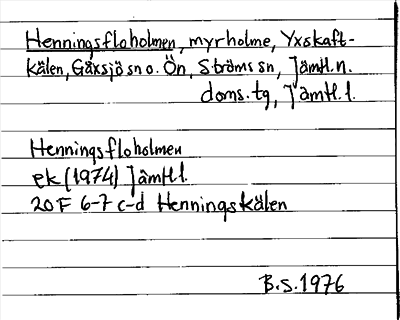 Henningsfloholmen, myrholme, Yxskaft-
kälen, Gåxsjö sn o. Ön, Ströms sn, Jämtl. n.
doms. tg, Jämtl. l.
Henningsfloholmen
ek (1974) Jämtl.
20 F 6-7 c-d Henningskälen
B.S. 1976